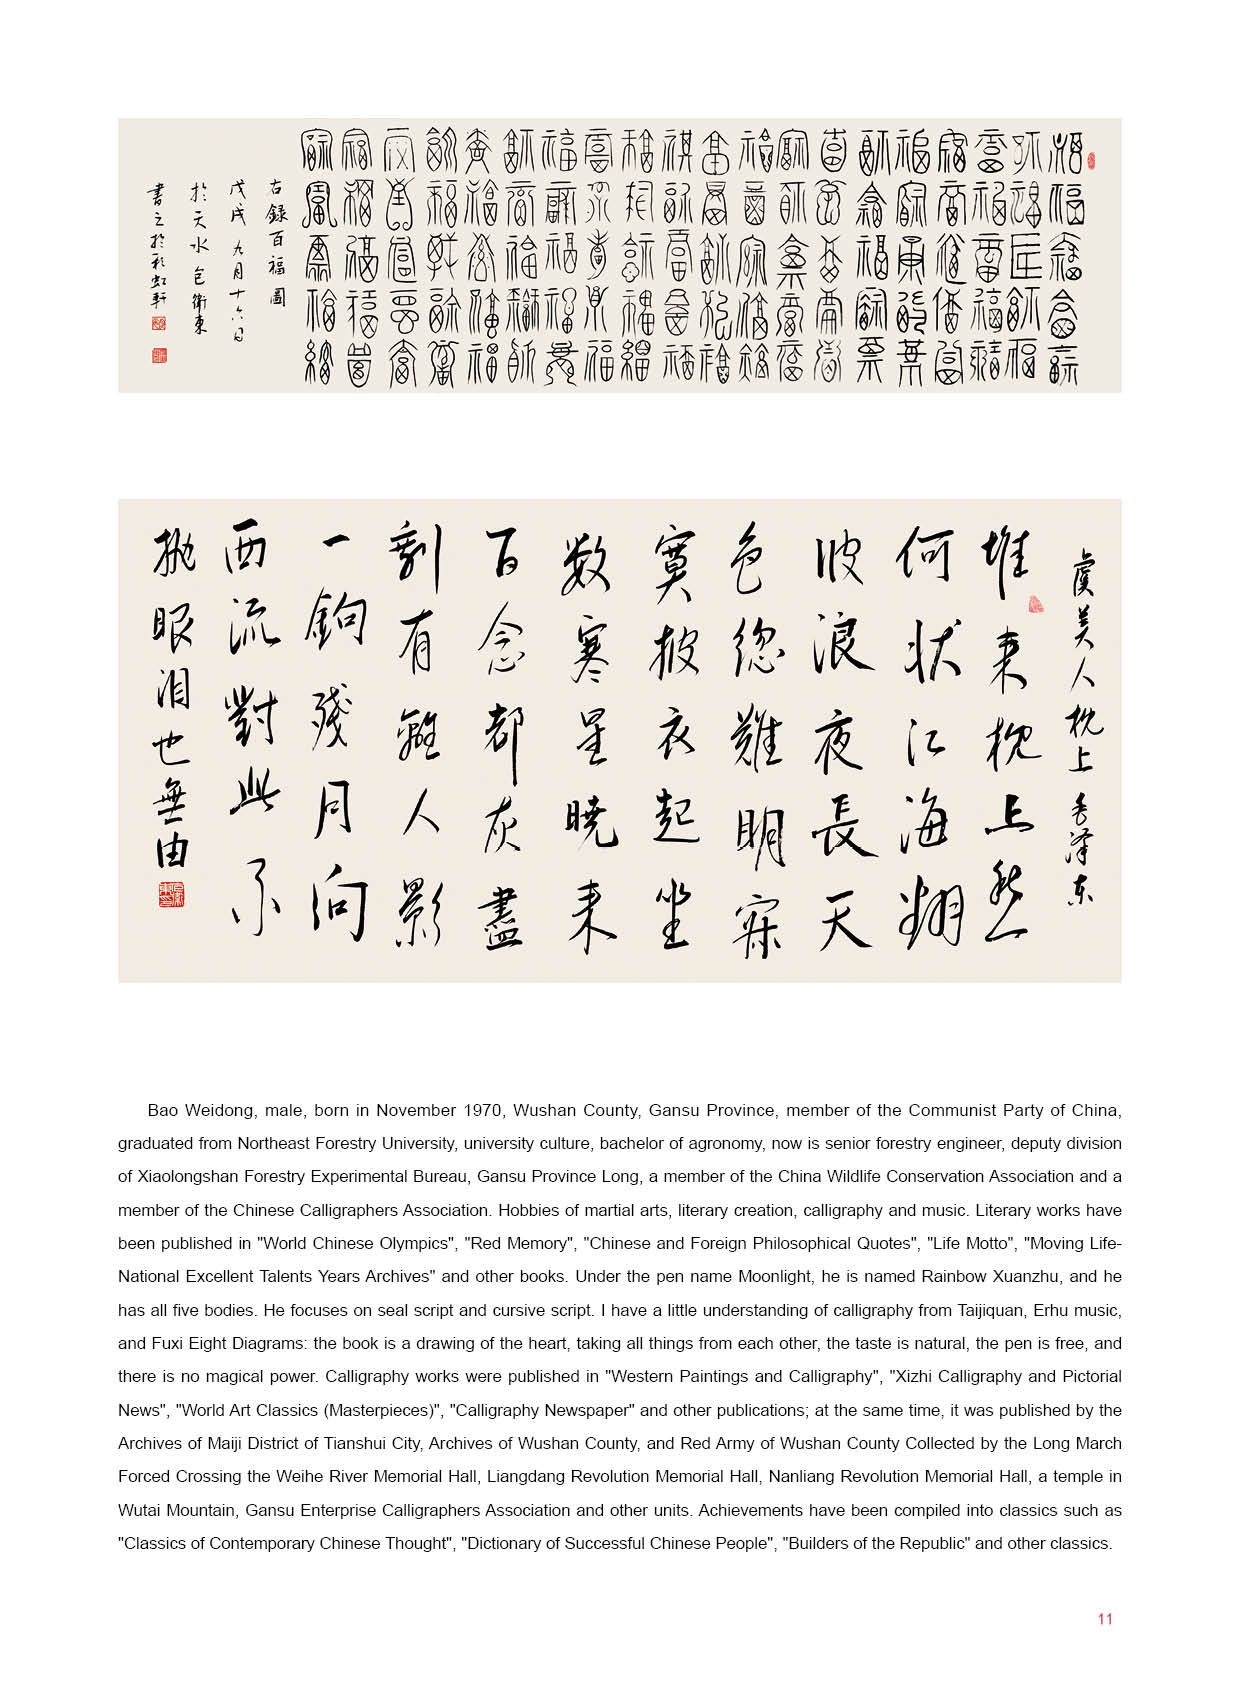 右録百福圖
戊戌九月十六日
於天水包衛東
書之於彩虹軒
虞美人枕上 毛澤东
堆来枕上愁
何状江海翻
波浪夜長天
色總難明寂
寞披衣起坐
数寒星曉来
百念都灰盡
剩有離人影
一鉤殘月向
西流對此不
抛眼泪也無由
Bao Weidong, male, born in November 1970, Wushan County, Gansu Province, member of the Communist Party of China,
graduated from Northeast Forestry University, university culture, bachelor of agronomy, now is senior forestry engineer, deputy division
of Xiaolongshan Forestry Experimental Bureau, Gansu Province Long, a member of the China Wildlife Conservation Association and a
member of the Chinese Calligraphers Association. Hobbies of martial arts, literary creation, calligraphy and music. Literary works have
been published in "World Chinese Olympics", "Red Memory", "Chinese and Foreign Philosophical Quotes", "Life Motto", "Moving Life-
National Excellent Talents Years Archives" and other books. Under the pen name Moonlight, he is named Rainbow Xuanzhu, and he
has all five bodies. He focuses on seal script and cursive script. I have a little understanding of calligraphy from Taijiquan, Erhu music,
and Fuxi Eight Diagrams: the book is a drawing of the heart, taking all things from each other, the taste is natural, the pen is free, and
there is no magical power. Calligraphy works were published in "Western Paintings and Calligraphy", "Xizhi Calligraphy and Pictorial
News", "World Art Classics (Masterpieces)", "Calligraphy Newspaper" and other publications; at the same time, it was published by the
Archives of Maiji District of Tianshui City, Archives of Wushan County, and Red Army of Wushan County Collected by the Long March
Forced Crossing the Weihe River Memorial Hall, Liangdang Revolution Memorial Hall, Nanliang Revolution Memorial Hall, a temple in
Wutai Mountain, Gansu Enterprise Calligraphers Association and other units. Achievements have been compiled into classics such as
"Classics of Contemporary Chinese Thought", "Dictionary of Successful Chinese People", "Builders of the Republic" and other classics.
11